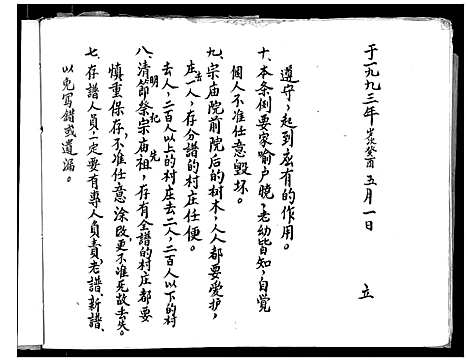 以免写错或遗漏。
七、存譜人員一定要有專人負責,老譜新譜、
慎重保存,不准任意涂改,更不准死故丢失。
八、清明節祭宗庙祀先祖,存有全譜的村庄都要
去人,二百人以上的村庄去二人,二百人以下的村
庄去一人,存分譜的村庄任便。
九、宗庙院前院后的树木,人人都要爱护,
個人不准任意毁坏。
十、本条例要家喻户晓,老幼皆知,自覚
遵守,起到应有的作用。
于一九九三年岁次癸酉五月一日
立